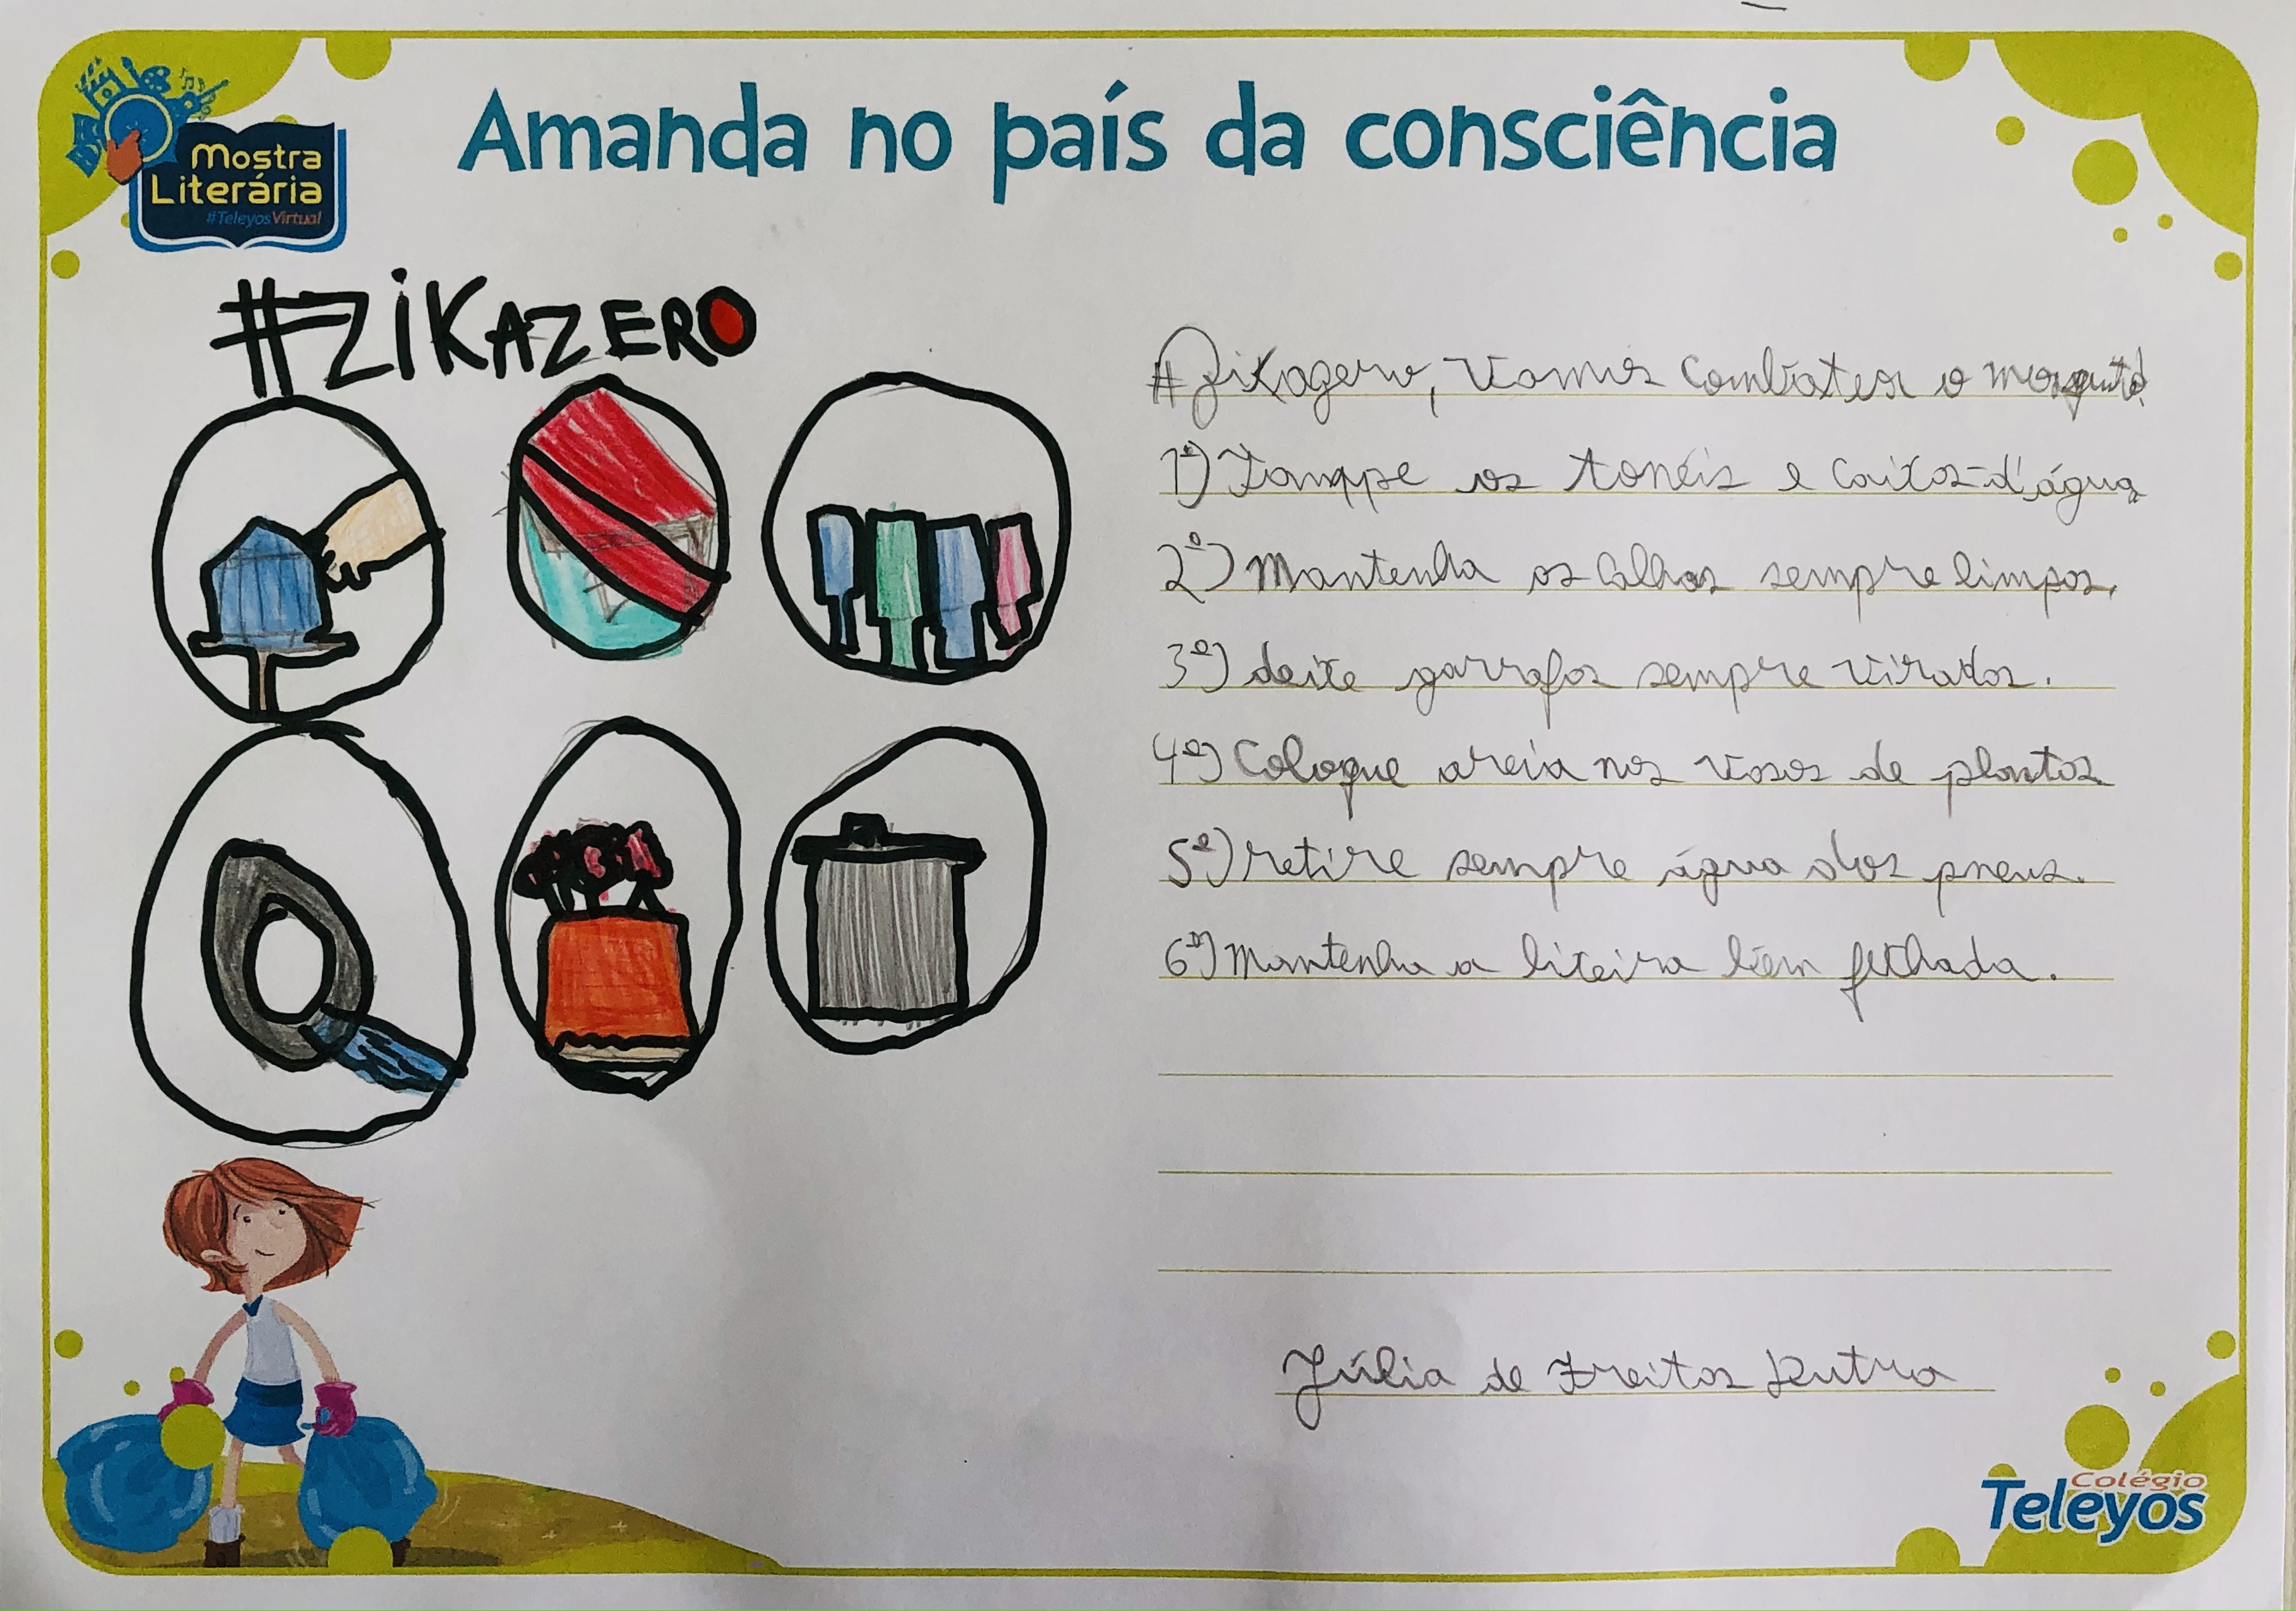 Amanda no país da consciência
Mostra
Literária
#TeleyosVirtual
#ZiKAZERO
#Zikazero, Vamos Combater o mosquito!
1º) Tampe os tonéis e Caixas-d'água
2º) Mantenha as Calhas sempre limpas.
3º) deixe garrafas sempre viradas.
4º) Coloque areia nos vasos de plantas
5º) retire sempre água dos pneus.
6º) Mantenha a lixeira bem fechada.
Júlia de Freitas Dutra
Colégio
Teleyos